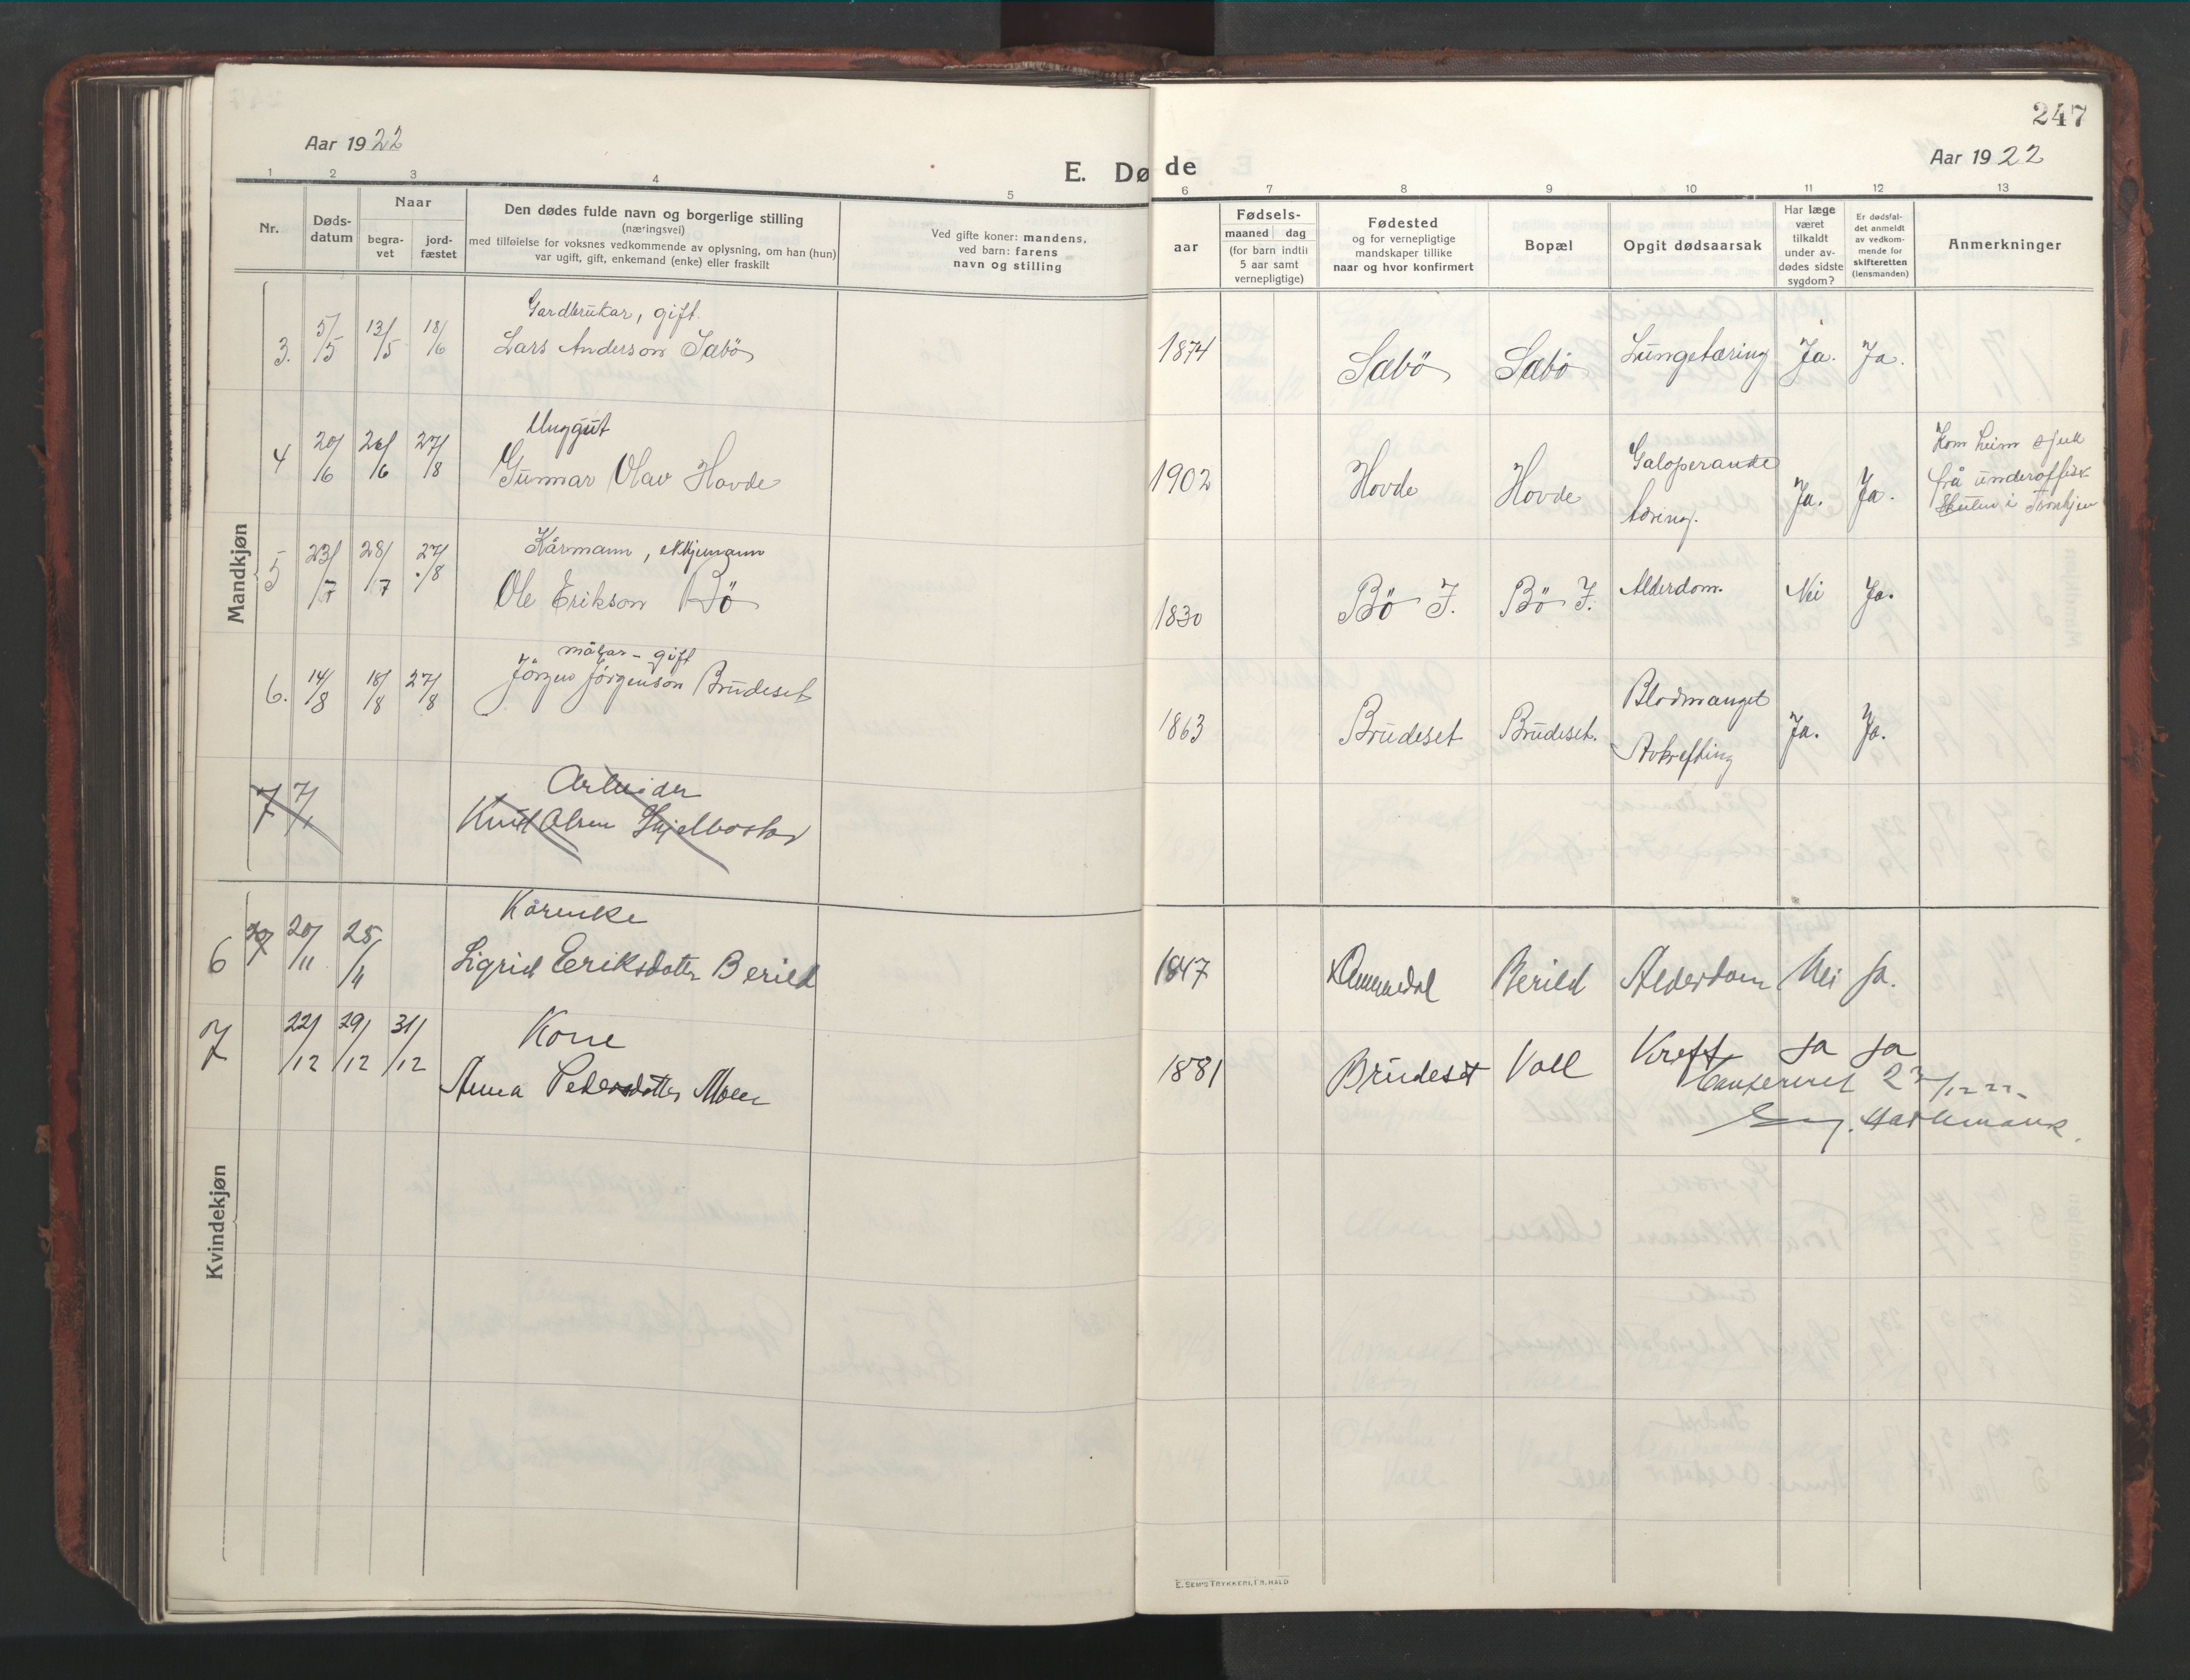 247
Aar 1922
Aar 1922
E. Døde
1 2 3 4 5 6 7 8 9 10 11 12 13
Nr.
Døds-
datum
Naar
begra-
vet
jord-
fæstet
Den dødes fulde navn og borgerlige stilling
(næringsvei)
med tilføielse for voksnes vedkommende av oplysning, om han (hun)
var ugift, gift, enkemand (enke) eller fraskilt
Ved gifte koner: mandens,
ved barn: farens
navn og stilling
Fødsels-
aar
maaned dag
(for barn indtil
5 aar samt
vernepligtige)
Fødested
og for vernepligtige
mandskaper tillike
naar og hvor konfirmert
Bopæl
Opgit dødsaarsak
Har læge
været
tilkaldt
under av-
dødes sidste
sygdom?
Er dødsfal-
det anmeldt
av vedkom-
mende for
skifteretten
(lensmanden)
Anmerkninger
Mandkjøn
Gardbrukar, gift.
3. 5/5 13/5 18/6 Lars Anderson Sæbö 1874 Sæbö Sæbö Lungetæring Ja. Ja.
Unggut
4 20/6 26/6 27/8 Gunnar Olav Hovde 1902 Hovde Hovde Galoperande
tæring. Ja. Ja.
Kom heim sjuk
frå underoffisk
skulen i Trondhjem
Kårmann, enkjemann
5 23/7 28/7 27/8 Ole Erikson Bö 1830 Bö I. Bö I. Alderdom. Nei Ja.
målar - gift
6. 14/8 18/8 27/8 Jörgen Jörgenson Brudeset 1863 Brudeset Brudeset. Blodmangel
Avkrefting Ja. Ja.
Arbeider
7 7/1 Knut Olsen Skjelbostad
Kvindekjøn
Kårenke
6 20/11 25/11 Sigrid Eriksdatter Berild 1847 Berild Alderdom Nei Ja.
Kone
7 22/12 29/12 31/12 Anna Pedersdatter Moen 1881 Brudeset Voll Kreft Ja Ja
Konfereret 23/12 22.
E. SEM'S TRYKKERI, FR.HALD